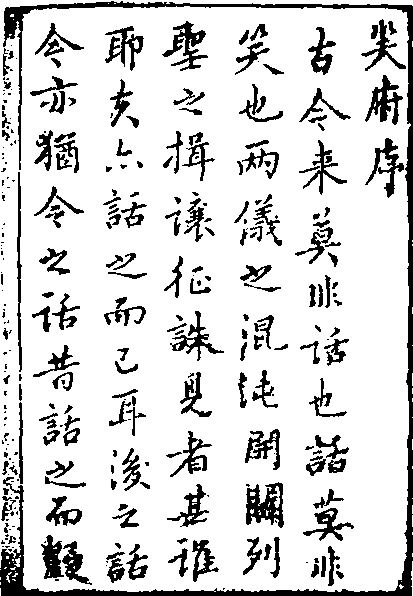 笑府序
古今来莫非話也話莫非
笑也两儀之混沌開闢列
聖之揖讓征誅見者其誰
耶夫亦話之而已耳後之話
今亦猶今之話昔話之而疑